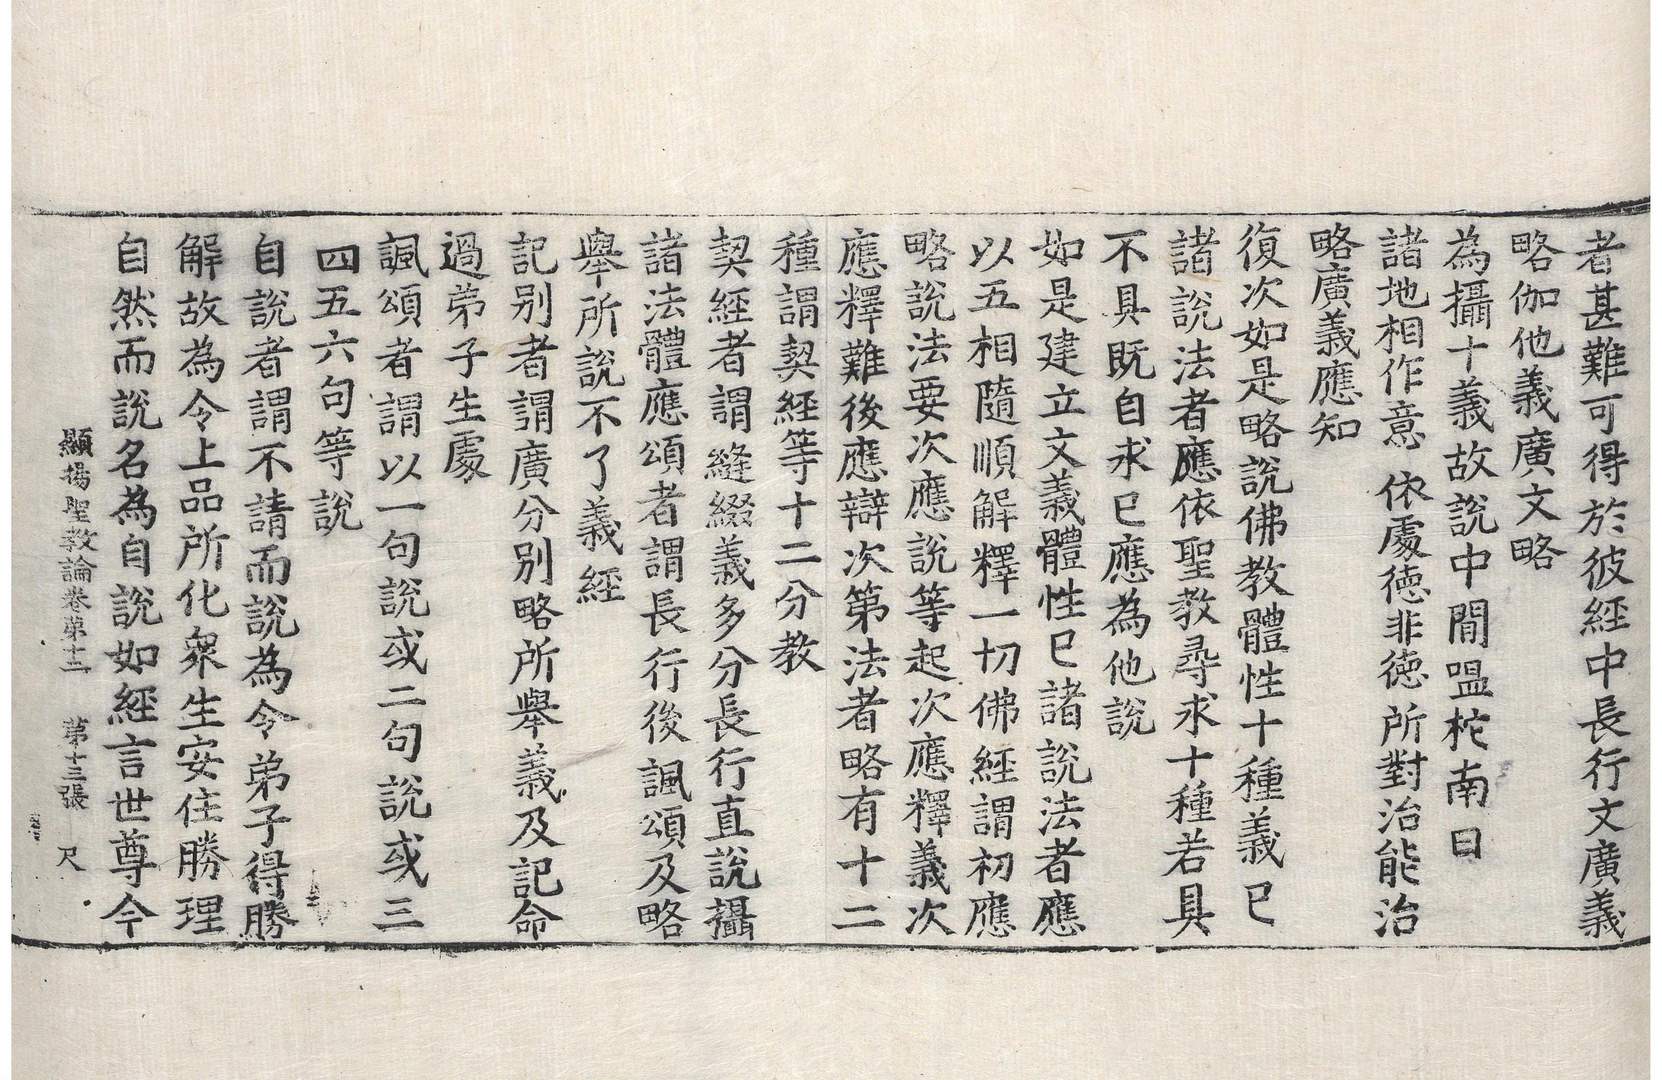 者甚難可得於彼經中長行文廣義
略伽他義廣文略
為攝十義故說中間嗢柁南曰
諸地相作意 依處德非德 所對治能治
略廣義應知
復次如是略說佛教體性十種義已
諸說法者應依聖教尋求十種若具
不具既自求已應為他說
如是建立文義體性已諸說法者應
以五相隨順解釋一切佛經謂初應
略說法要次應說等起次應釋義次
應釋難後應辯次第法者略有十二
種謂契經等十二分教
契經者謂縫綴義多分長行直說攝
諸法體應頌者謂長行後諷頌及略
舉所說不了義經
記別者謂廣分別略所舉義及記命
過弟子生處
諷頌者謂以一句說或二句說或三
四五六句等說
自說者謂不請而說為令弟子得勝
解故為令上品所化衆生安住勝理
自然而說名為自說如經言世尊今
顯揚聖教論卷第十二 第十三張 尺